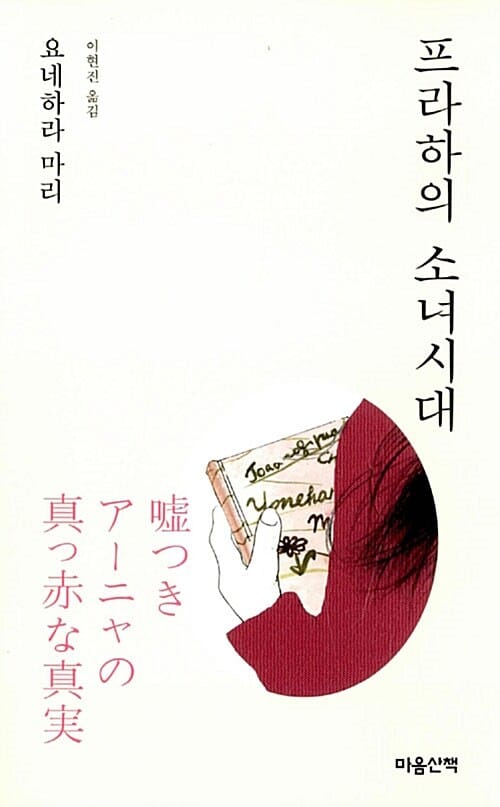 프라하의 소녀시대
이현진 옮김
요네하라 마리
嘘つき
アーニャの
真っ赤な真実
Yoneha
M
마음산책